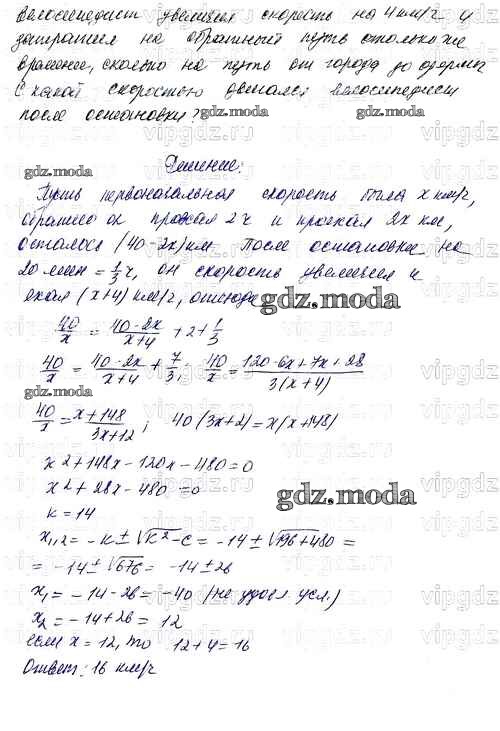 Велосипедист увеличил скорость на 4 км/ч и
затратил на обратный путь столько же
времени, сколько на путь от города до фермы
С какой скоростью двигался велосипедист
после остановки?
gdz.moda
gdz.moda
Решение:
Пусть первоначальная скорость была x км/ч,
обратно он проехал 2ч и проехал 2x км,
осталось (40-2x) км. После остановки на
20 мин = 1/3 ч, он скорость увеличил и
ехал (x+4) км/ч, отсюда
gdz.moda
40/x = (40-2x)/(x+4) + 2 + 1/3
40/x = (40-2x)/(x+4) + 7/3; 40/x = (120-6x+7x+28)/(3(x+4))
40/x = (x+148)/(3x+12); 40(3x+2)=x(x+148)
gdz.moda
x²+148x-120x-480=0
x²+28x-480=0
gdz.moda
k=14
x₁,₂=-k±√k²-c = -14±√196+480 =
= -14±√676 = -14±26
x₁=-14-26=-40 (не удовл. усл.)
x₂=-14+26=12
если x=12, то 12+4=16
Ответ: 16 км/ч
vipgdz.ru